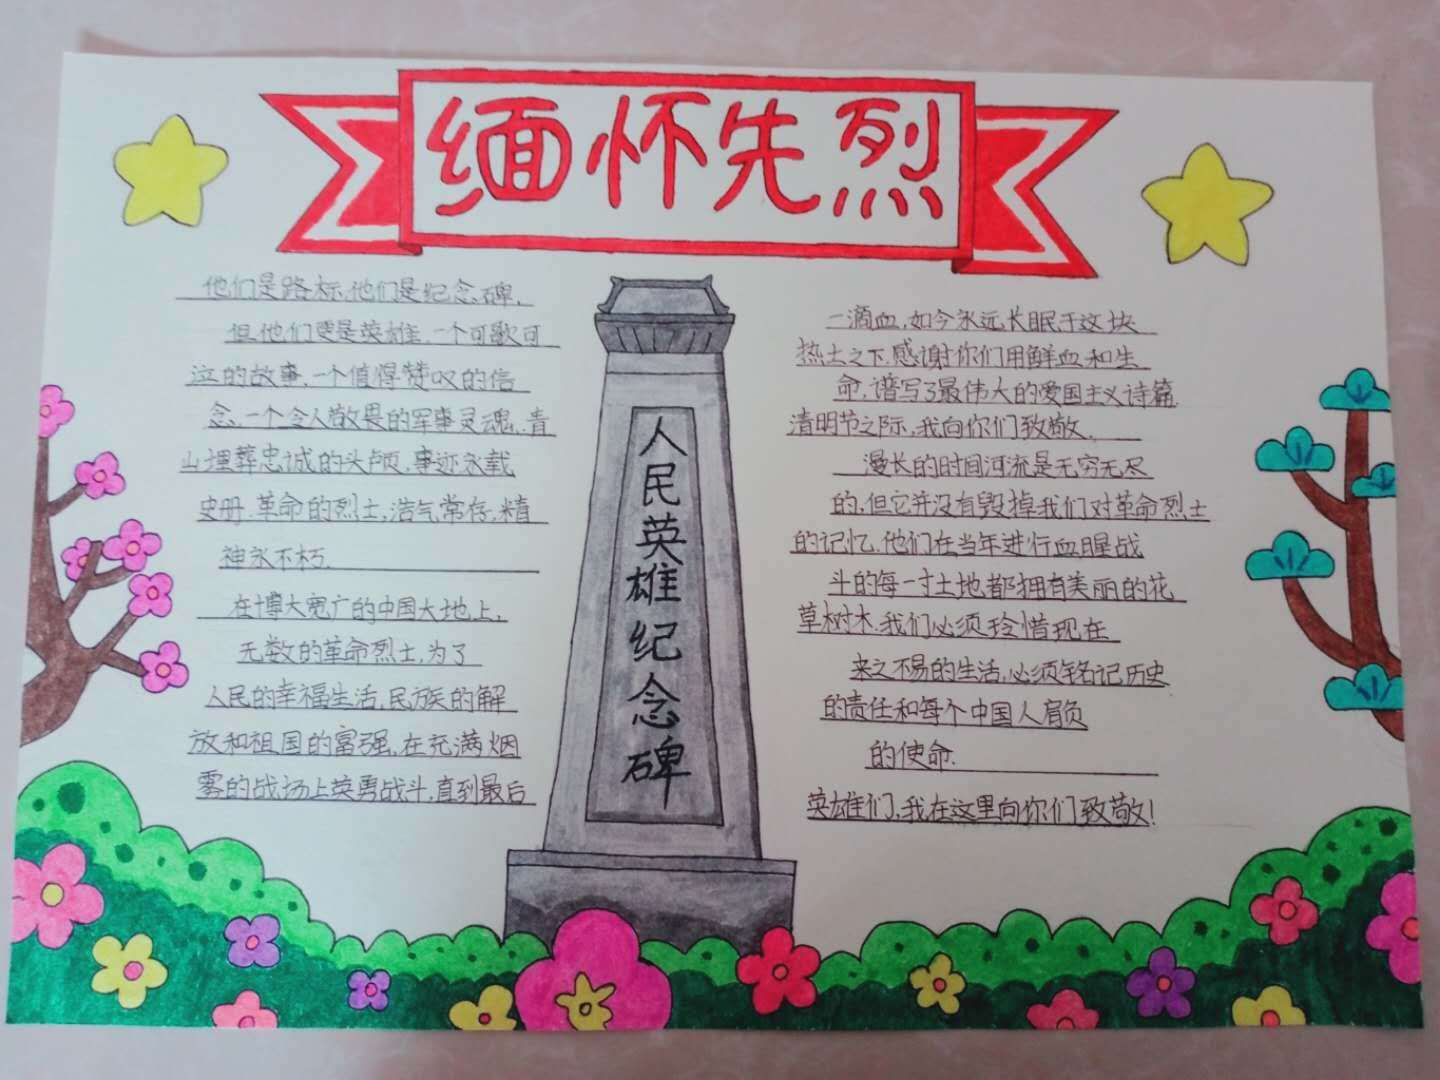 缅怀先烈
他们是路标,他们是纪念碑,
但他们更是英雄.一个可歌可
泣的故事,一个值得赞叹的信
念,一个令人敬畏的军事灵魂.青
山埋葬忠诚的头颅,事迹永载
史册.革命的烈士,浩气常存,精
神永不朽.
在博大宽广的中国大地上,
无数的革命烈士,为了
人民的幸福生活,民族的解
放和祖国的富强,在充满烟
雾的战场上英勇战斗,直到最后
人民英雄纪念碑
一滴血,如今永远长眠于这块
热土之下.感谢你们用鲜血和生
命,谱写了最伟大的爱国主义诗篇.
清明节之际,我向你们致敬.
漫长的时间河流是无穷无尽
的,但它并没有毁掉我们对革命烈士
的记忆.他们在当年进行血腥战
斗的每一寸土地都拥有美丽的花
草树木.我们必须珍惜现在
来之不易的生活,必须铭记历史
的责任和每个中国人肩负
的使命.
英雄们,我在这里向你们致敬!